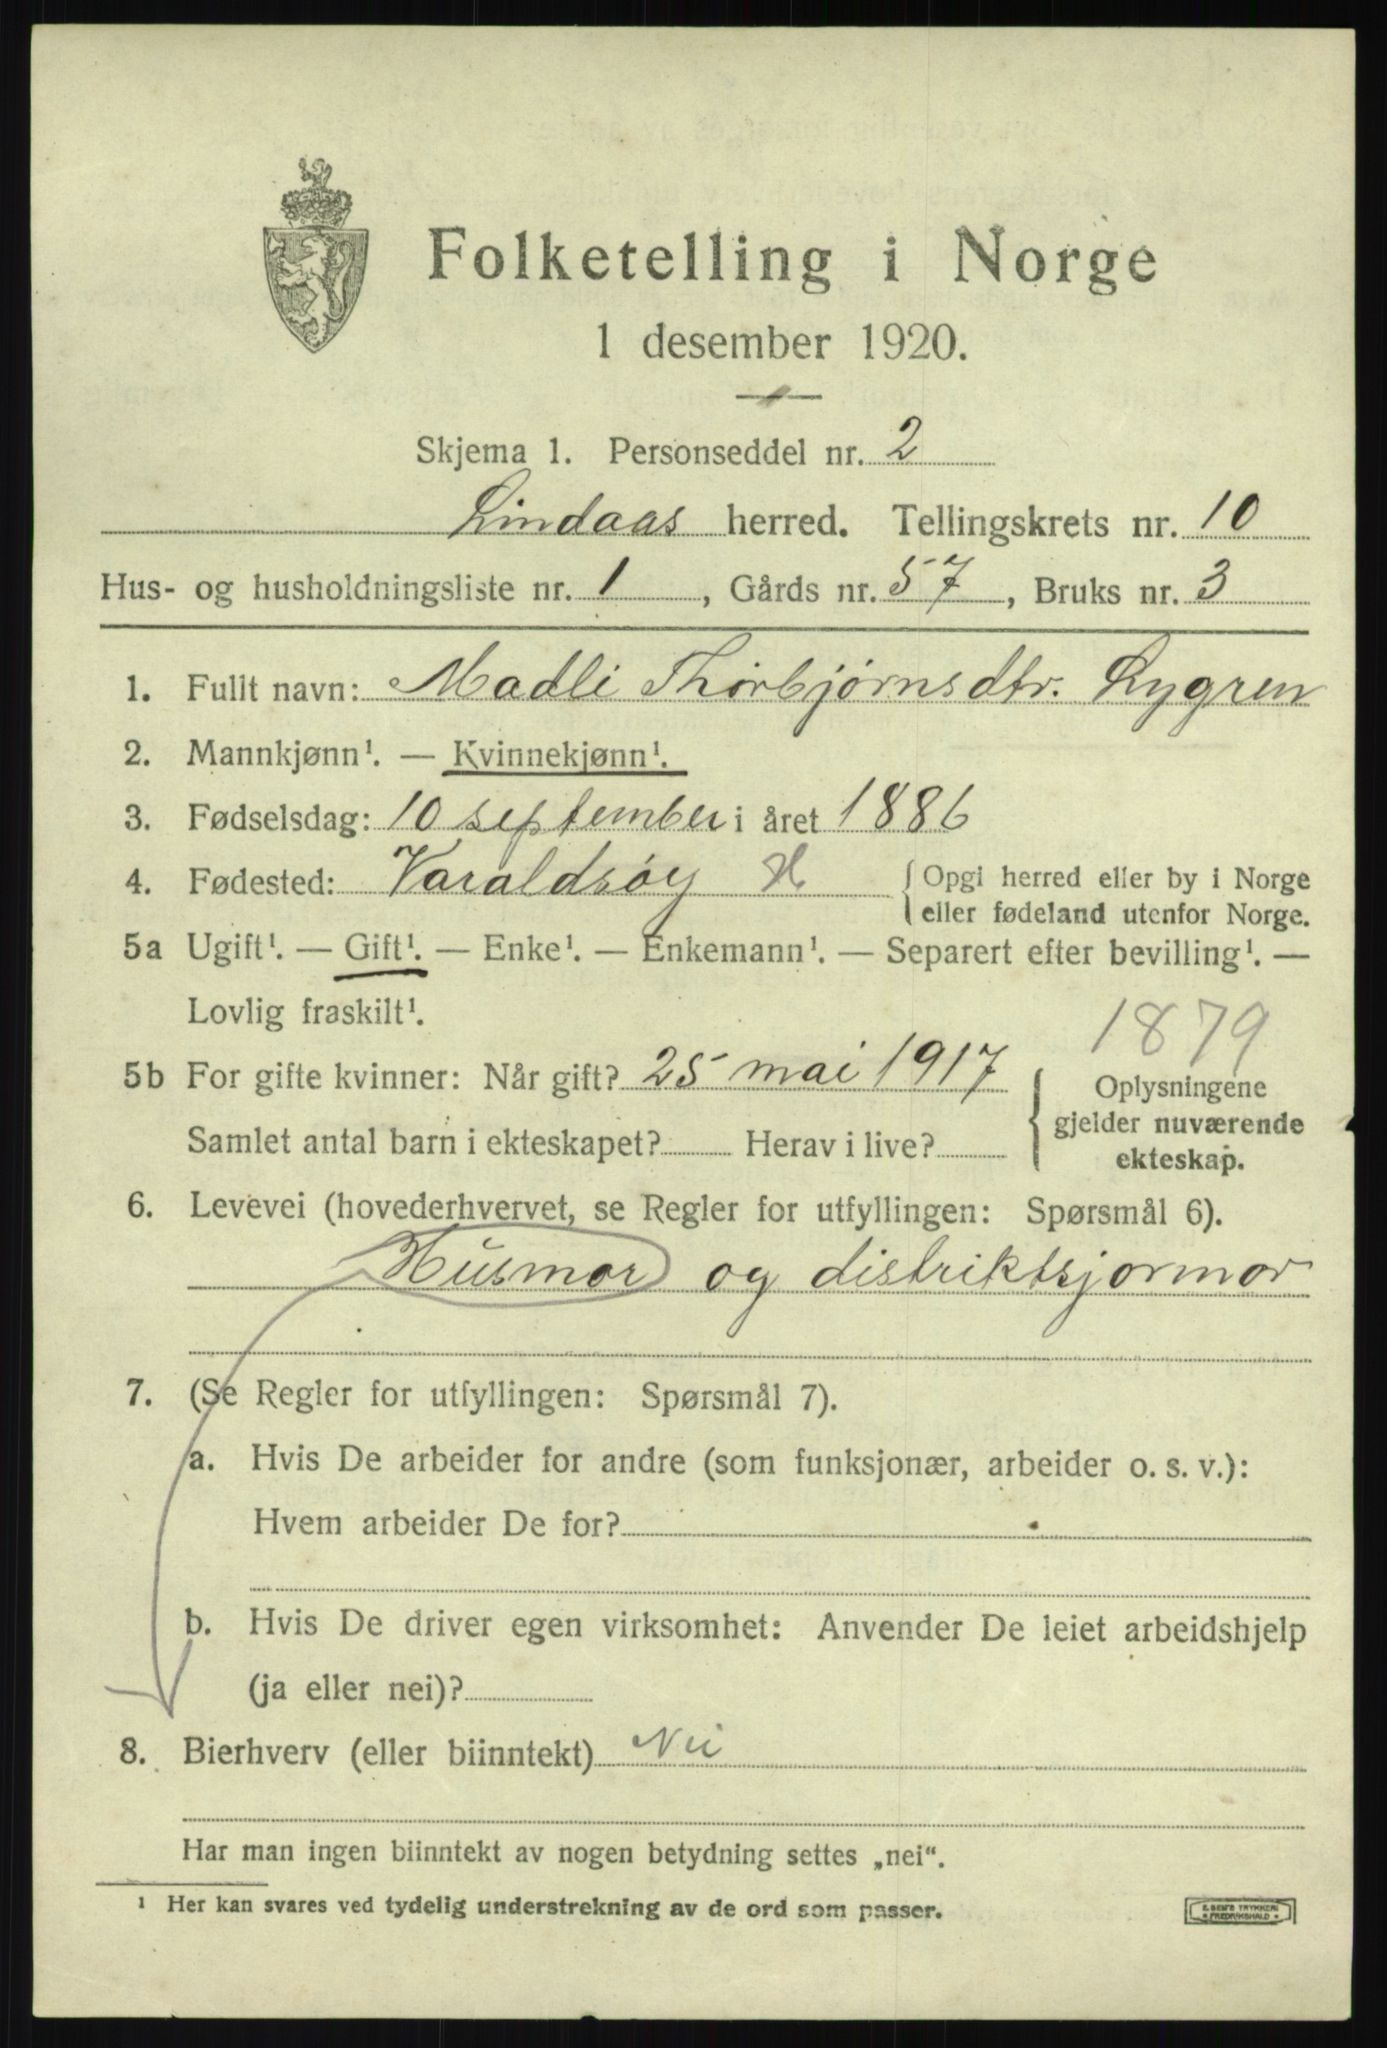 Folketelling i Norge
1 desember 1920.
Skjema 1. Personseddel nr. 2
Lindaas herred. Tellingskrets nr. 10
Hus- og husholdningsliste nr. 1, Gårds nr. 57, Bruks nr. 3
1. Fullt navn: Madli Thorbjørnsdtr. Lygren
2. Mannkjønn¹. — Kvinnekjønn¹.
3. Fødselsdag: 10 september i året 1886
4. Fødested: Varaldsøy H { Opgi herred eller by i Norge
eller fødeland utenfor Norge.
5a Ugift¹. — Gift¹. — Enke¹. — Enkemann¹. — Separert efter bevilling¹. —
Lovlig fraskilt¹.
1879
5b For gifte kvinner: Når gift? 25 mai 1917 { Oplysningene
gjelder nuværende
Samlet antal barn i ekteskapet? Herav i live?
ekteskap.
6. Levevei (hovederhvervet, se Regler for utfyllingen: Spørsmål 6).
Husmor og distriktsjormor
7. (Se Regler for utfyllingen: Spørsmål 7).
a. Hvis De arbeider for andre (som funksjonær, arbeider o. s. v.):
Hvem arbeider De for?
b. Hvis De driver egen virksomhet: Anvender De leiet arbeidshjelp
(ja eller nei)?
8. Bierhverv (eller biinntekt) Nei
Har man ingen biinntekt av nogen betydning settes „nei“.
¹ Her kan svares ved tydelig understrekning av de ord som passer.
FREDRIKSHALD